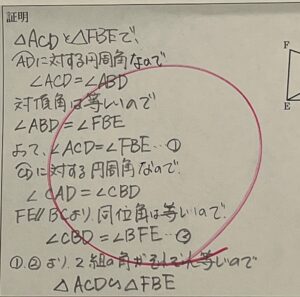 証明
△ACDと△FBEで、
ADに対する円周角なので
∠ACD=∠ABD
対頂角は等しいので
∠ABD=∠FBE
よって、∠ACD=∠FBE…①
CDに対する円周角なので
∠CAD=∠CBD
FE//BCより同位角は等しいので
∠CBD=∠BFE…②
①.②より2組の角がそれぞれ等しいので
△ACD∽△FBE
F
E